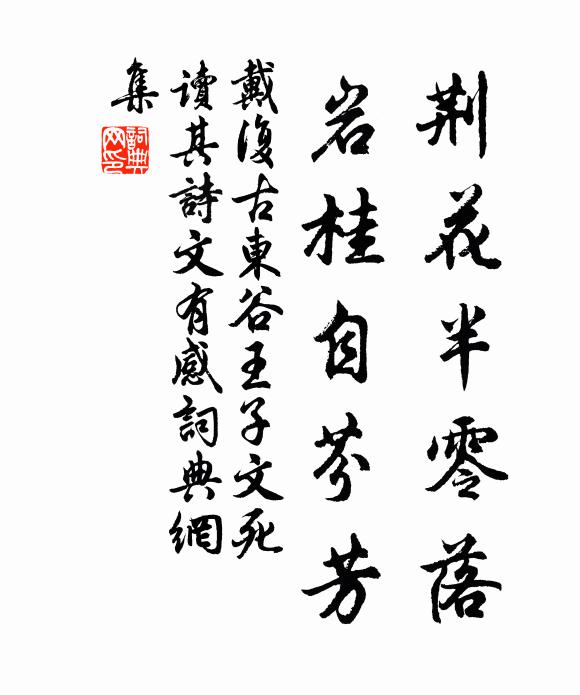 荆花半零落
岩桂自芬芳
戴復古東谷王子文死
讀其詩文有感詞典網
集
詞典网印